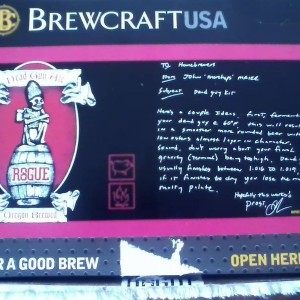 BC
BREWCRAFTUSA
DEAD GUY ALE
ROGUE
Oregon Brewed
To: Homebrewers
From: John "more hops" Maier
Subject: Dead guy kit
Here's a couple Ideas. first, ferment
your dead guy @ 60°F. this will result
in a smoother more rounded beer with
low esters almost lager in character.
Second, don't worry about your final
gravity (terminal) being too high. Dead
usually finishes between 1.016 to 1.019.
if it finishes to dry you lose the
malty palate.
Hopefully this works
prost,
R A GOOD BREW
OPEN HERE